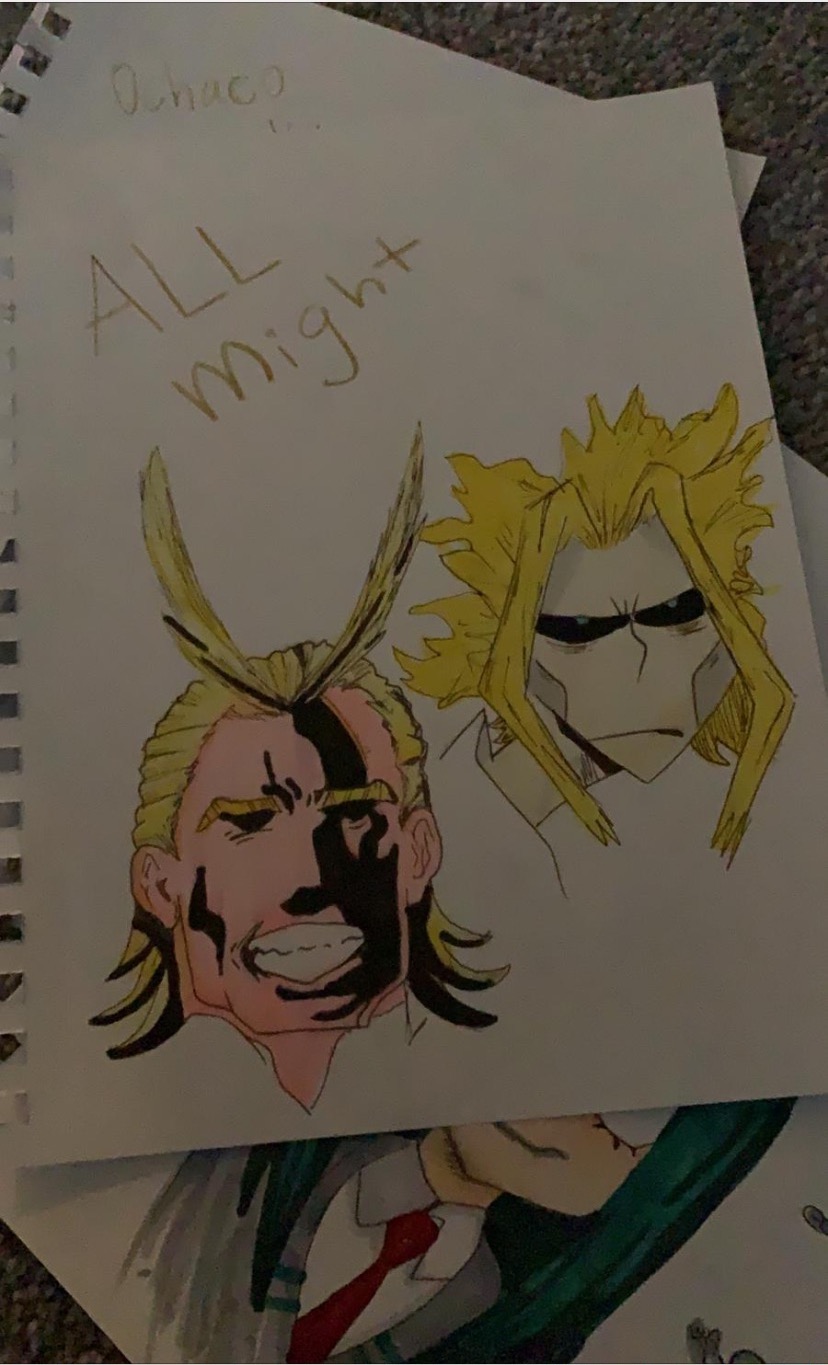 Ochaco
ALL
might